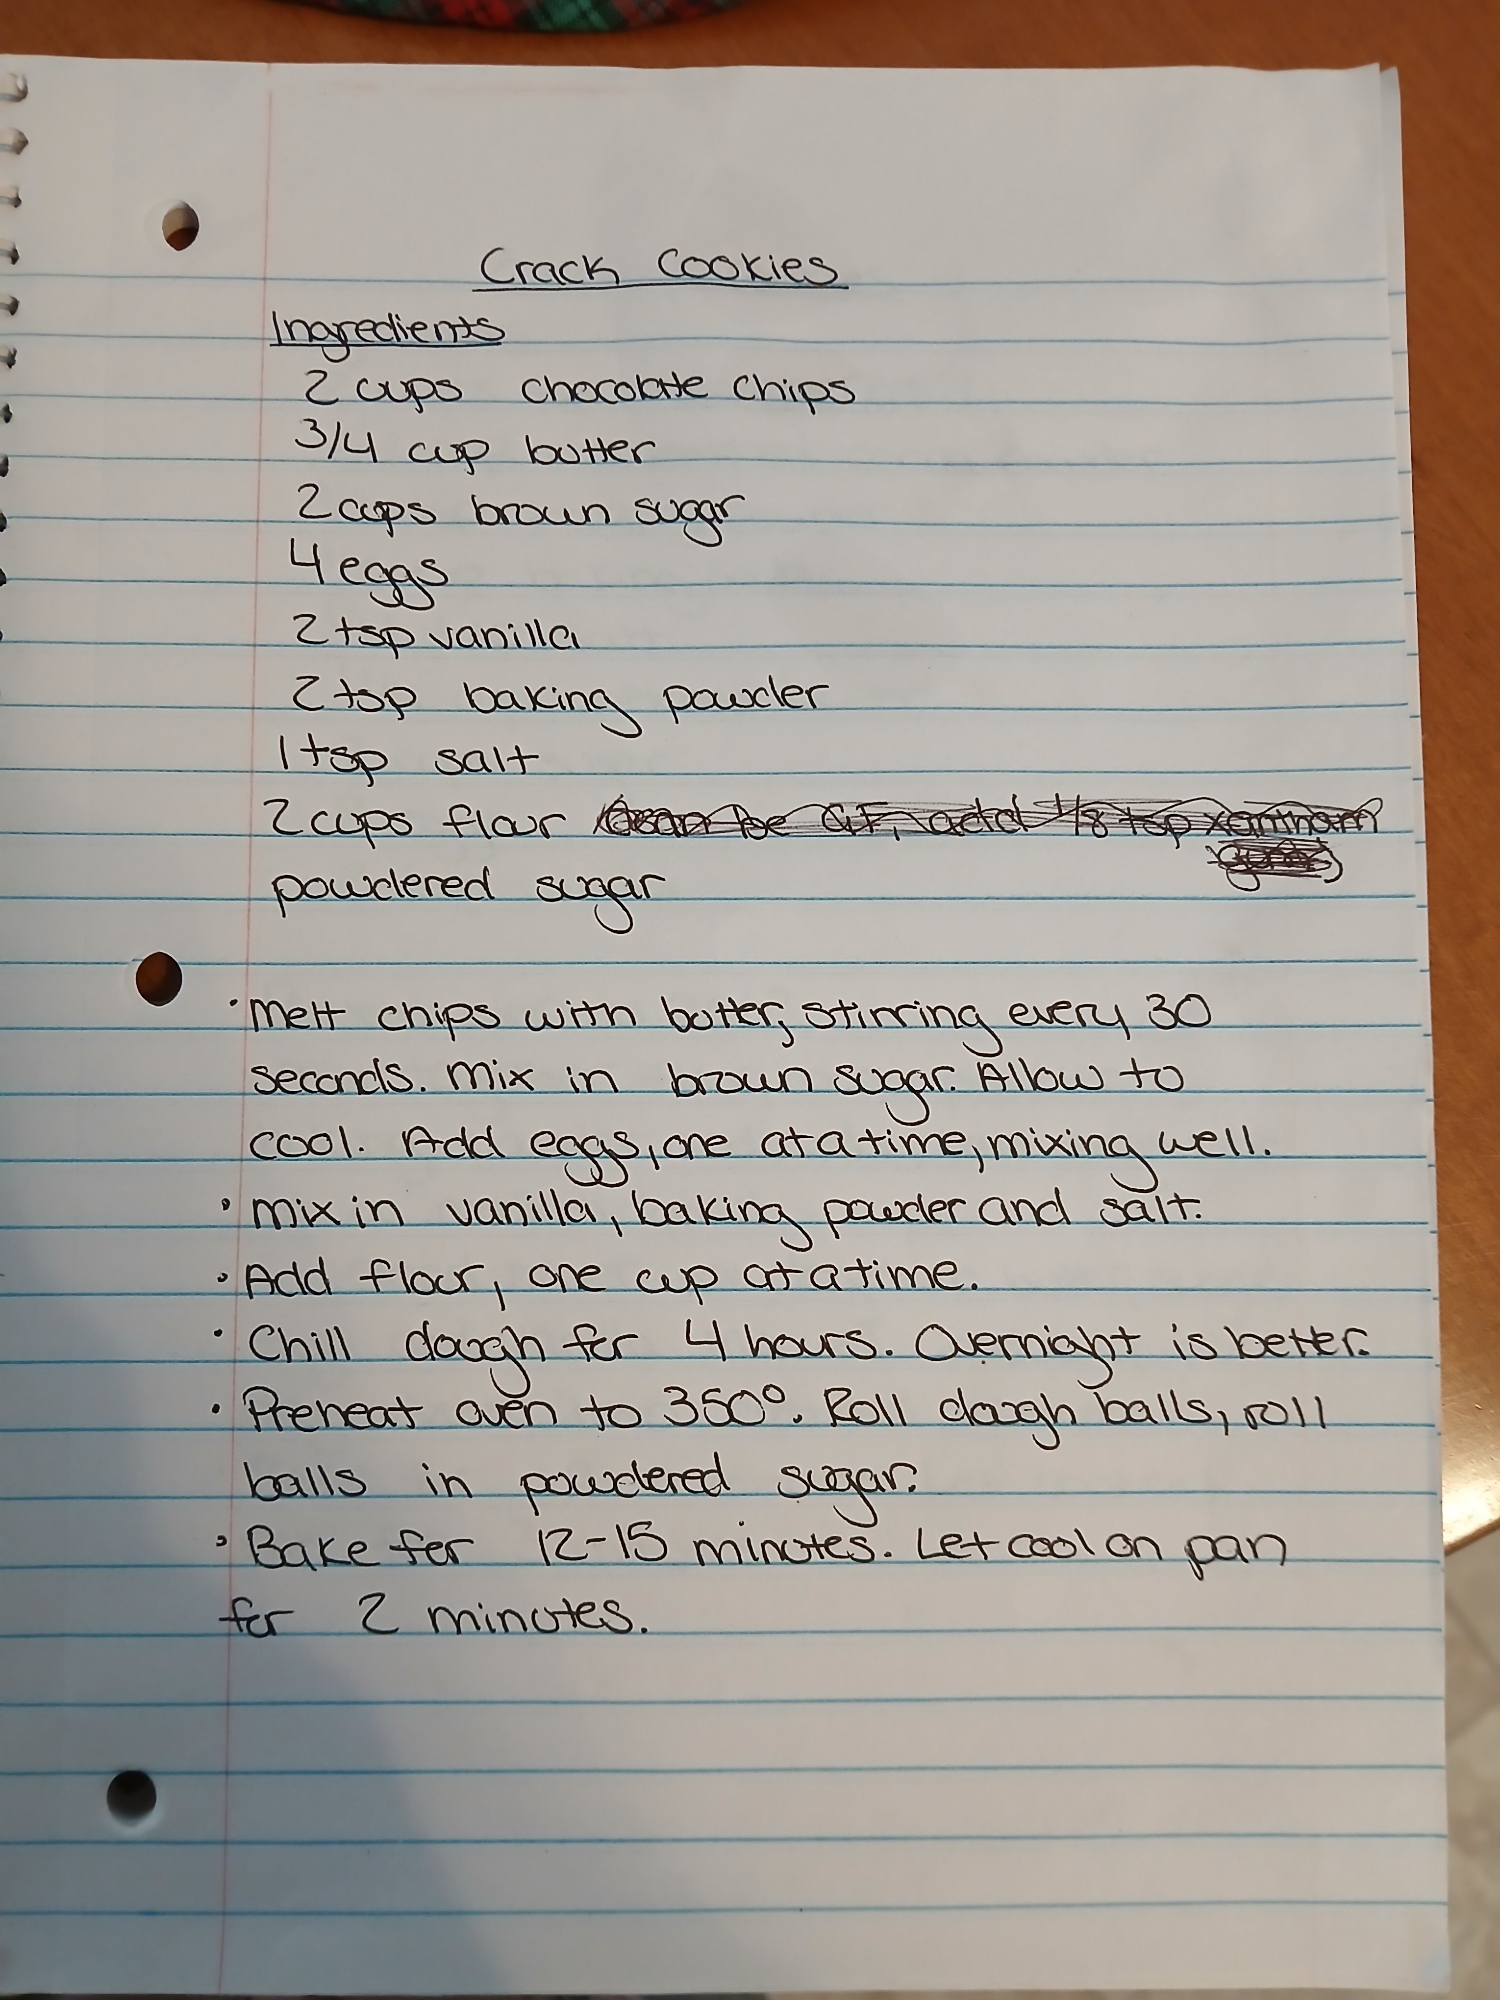 Crack Cookies
Ingredients
2 cups chocolate chips
3/4 cup butter
2 cups brown sugar
4 eggs
2 tsp vanilla
2 tsp baking powder
1 tsp salt
2 cups flour can be GF, add 1/8 tsp
powdered sugar
• Melt chips with butter, stirring every 30
seconds. Mix in brown sugar. Allow to
cool. Add eggs, one at a time, mixing well.
• Mix in vanilla, baking powder and salt.
• Add flour, one cup at a time.
• Chill dough for 4 hours. Overnight is better.
• Preheat oven to 350°. Roll dough balls, roll
balls in powdered sugar.
• Bake for 12-15 minutes. Let cool on pan
for 2 minutes.